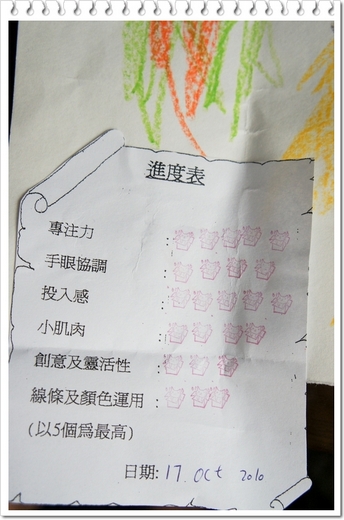 進度表
專注力 :
手眼協調 :
投入感 :
小肌肉 :
創意及靈活性 :
線條及顏色運用 :
(以5個為最高)
日期: 17. Oct 2010